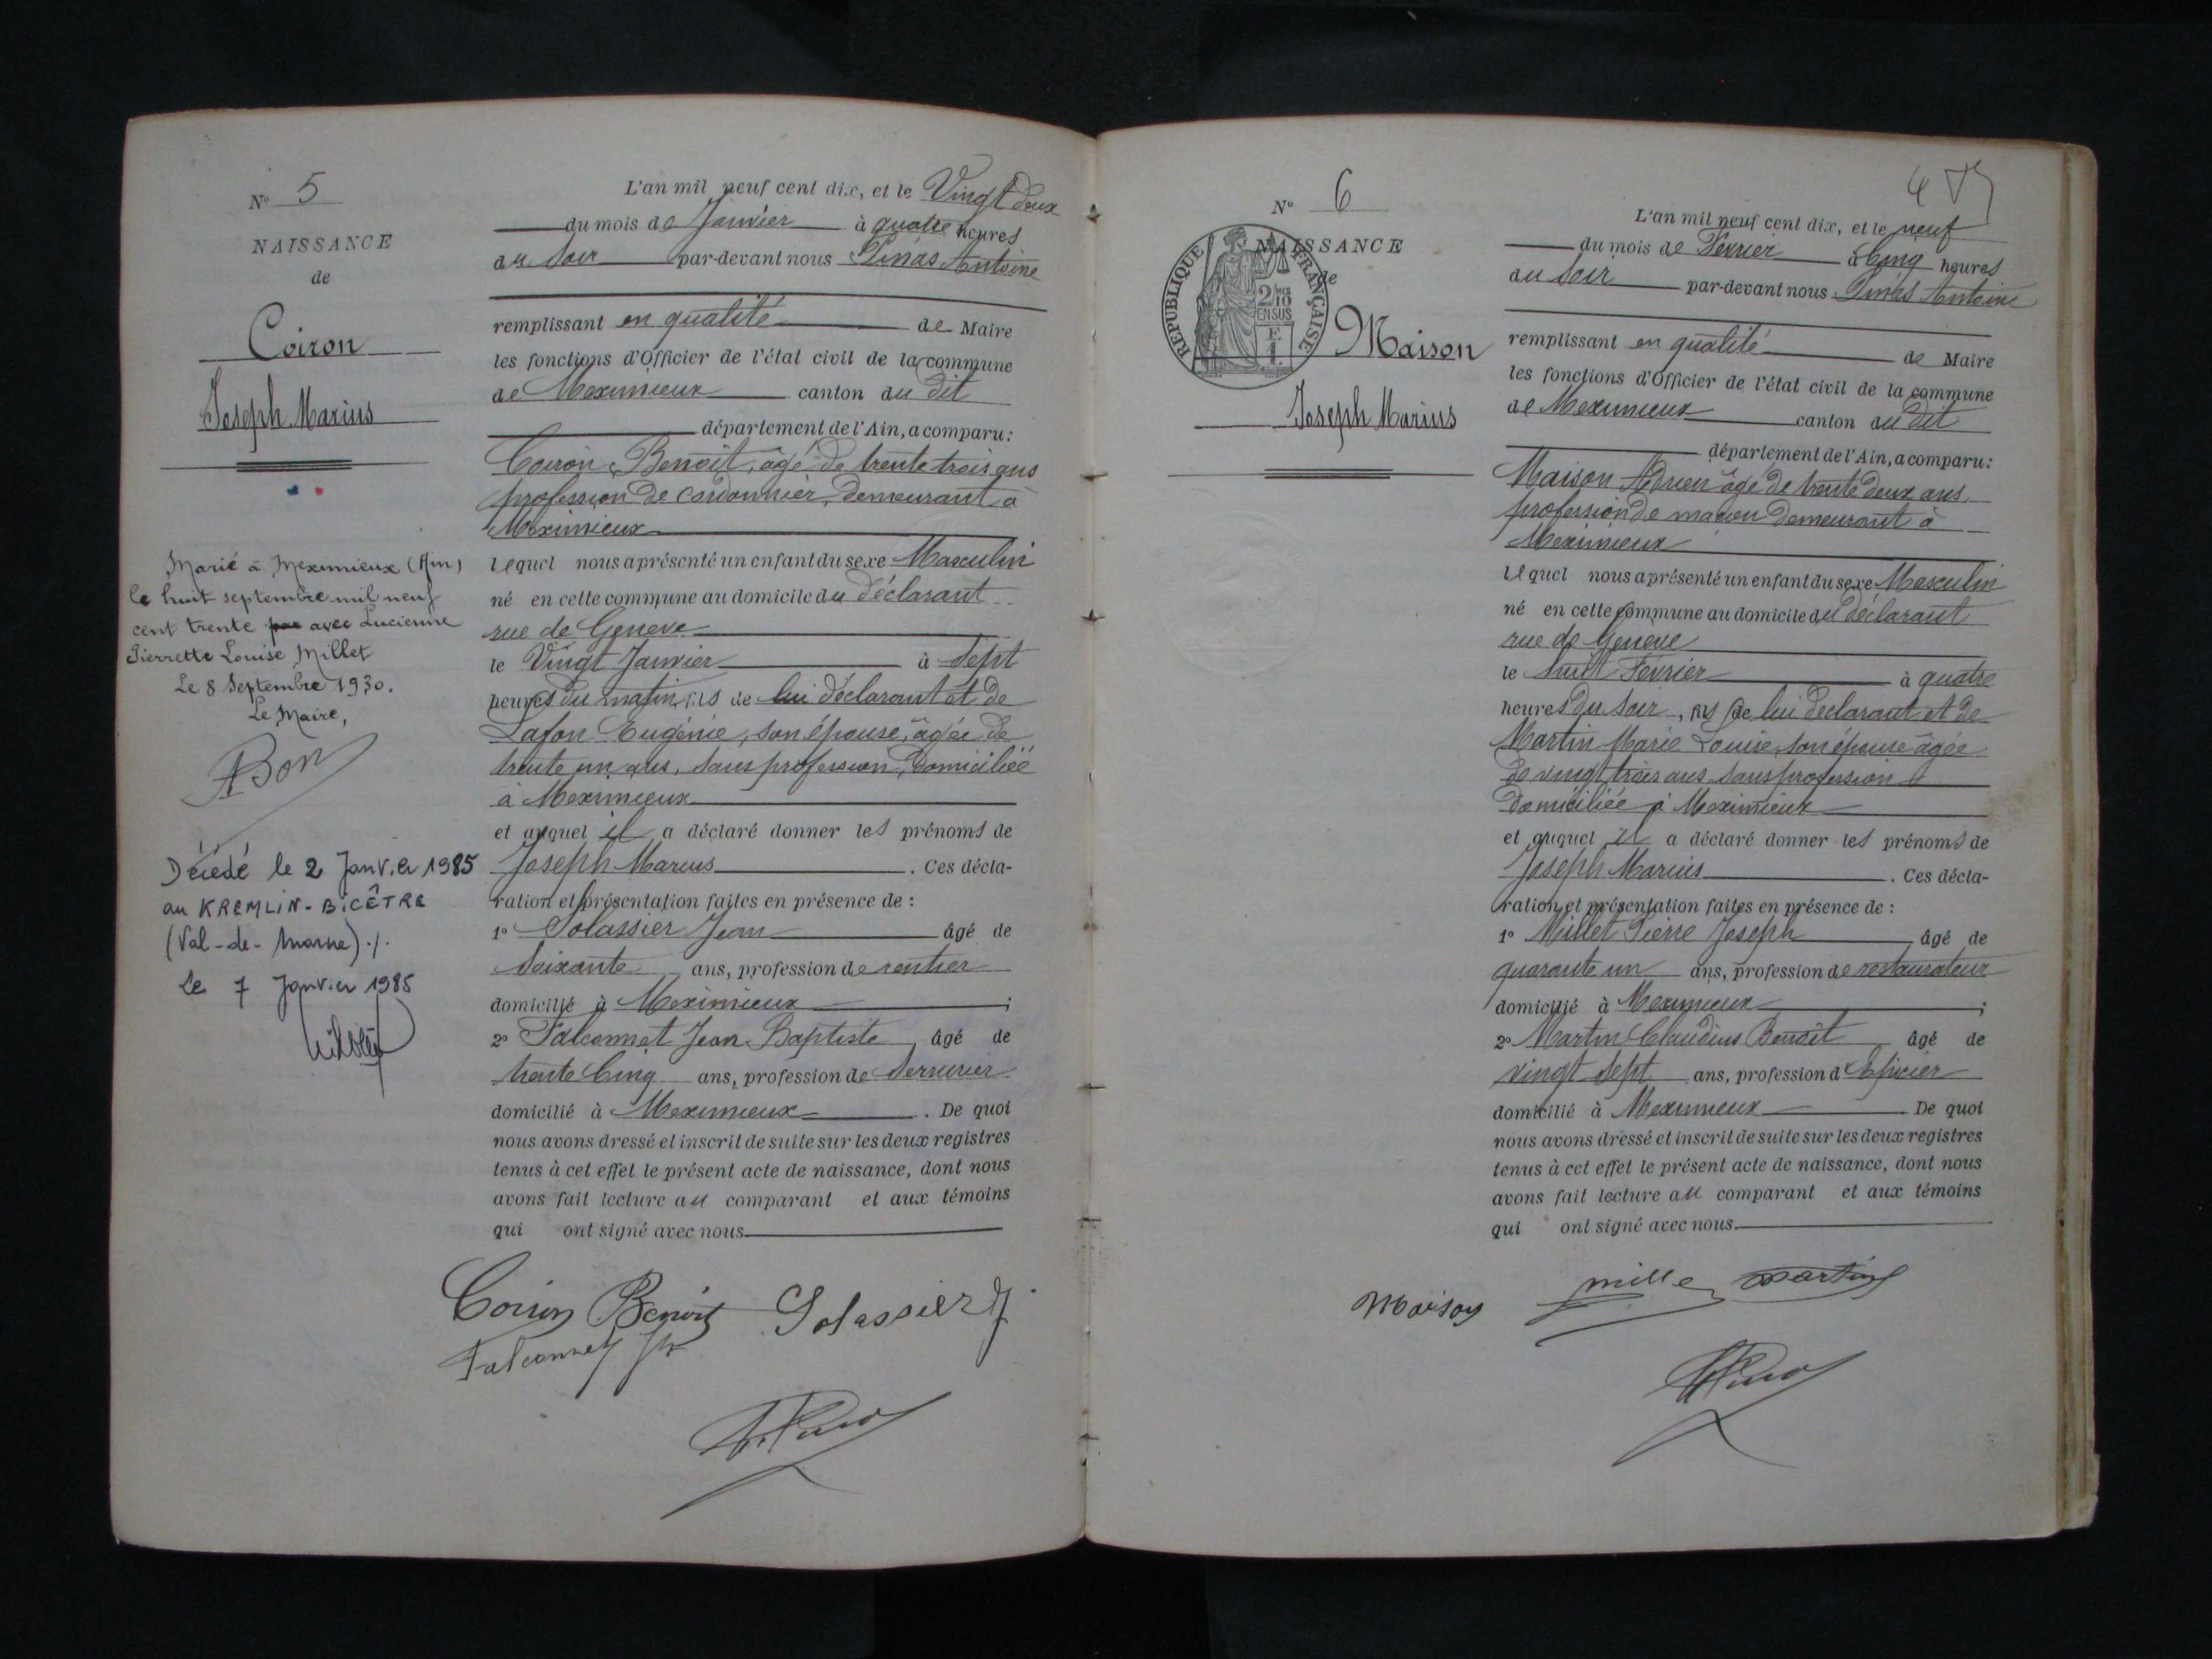 N° 5
NAISSANCE
de
Coiron
Joseph Marius
Marié à Meximieux (Ain)
le huit septembre mil neuf
cent trente avec Lucienne
Pierrette Louise Millet
Le 8 Septembre 1930.
Le Maire,
ABon
Décédé le 2 Janvier 1985
au KREMLIN-BICÊTRE
(Val-de-Marne)./.
Le 7 Janvier 1985
L'an mil neuf cent dix, et le Vingt deux
du mois de Janvier à quatre heures
du Soir par-devant nous Pinas Antoine
remplissant en qualité de Maire
les fonctions d'Officier de l'état civil de la commune
de Meximieux canton du dit
département de l'Ain, a comparu:
Coiron Benoît, âgé de trente trois ans
profession de cordonnier, demeurant à
Meximieux
lequel nous a présenté un enfant du sexe Masculin
né en cette commune au domicile du déclarant
rue de Geneve
le Vingt Janvier à Sept
heures du matin, fils de lui déclarant et de
Lafon Eugénie, son épouse, âgée de
trente un ans, sans profession, domiciliée
à Meximieux
et auquel il a déclaré donner les prénoms de
Joseph Marius. Ces décla-
ration et présentation faites en présence de :
1° Solassier Jean âgé de
Soixante ans, profession de rentier
domicilié à Meximieux ;
2° Falconnet Jean Baptiste, âgé de
trente Cinq ans, profession de Serrurier
domicilié à Meximieux. De quoi
nous avons dressé et inscrit de suite sur les deux registres
tenus à cet effet le présent acte de naissance, dont nous
avons fait lecture au comparant et aux témoins
qui ont signé avec nous.
Coiron Benoit Solassier J
Falconnet
N° 6
NAISSANCE
de
RÉPUBLIQUE FRANÇAISE
2/10
EN SUS
Maison
Joseph Marius
L'an mil neuf cent dix, et le neuf
du mois de Février à Cinq heures
du Soir par-devant nous Pinas Antoine
remplissant en qualité de Maire
les fonctions d'Officier de l'état civil de la commune
de Meximieux canton du dit
département de l'Ain, a comparu:
Maison Adrien âgé de trente deux ans,
profession de maçon demeurant à
Meximieux
lequel nous a présenté un enfant du sexe Masculin
né en cette commune au domicile du déclarant
rue de Geneve
le huit Février à quatre
heures du Soir, fils de lui déclarant et de
Martin Marie Louise, son épouse âgée
de vingt trois ans, sans profession
domiciliée à Meximieux
et auquel il a déclaré donner les prénoms de
Joseph Marius. Ces décla-
ration et présentation faites en présence de :
1° Millet Pierre Joseph, âgé de
quarante un ans, profession de restaurateur
domicilié à Meximieux ;
2° Martin Claudius Benoît âgé de
vingt Sept ans, profession d'Epicier
domicilié à Meximieux. De quoi
nous avons dressé et inscrit de suite sur les deux registres
tenus à cet effet le présent acte de naissance, dont nous
avons fait lecture au comparant et aux témoins
qui ont signé avec nous.
Maison mille martin